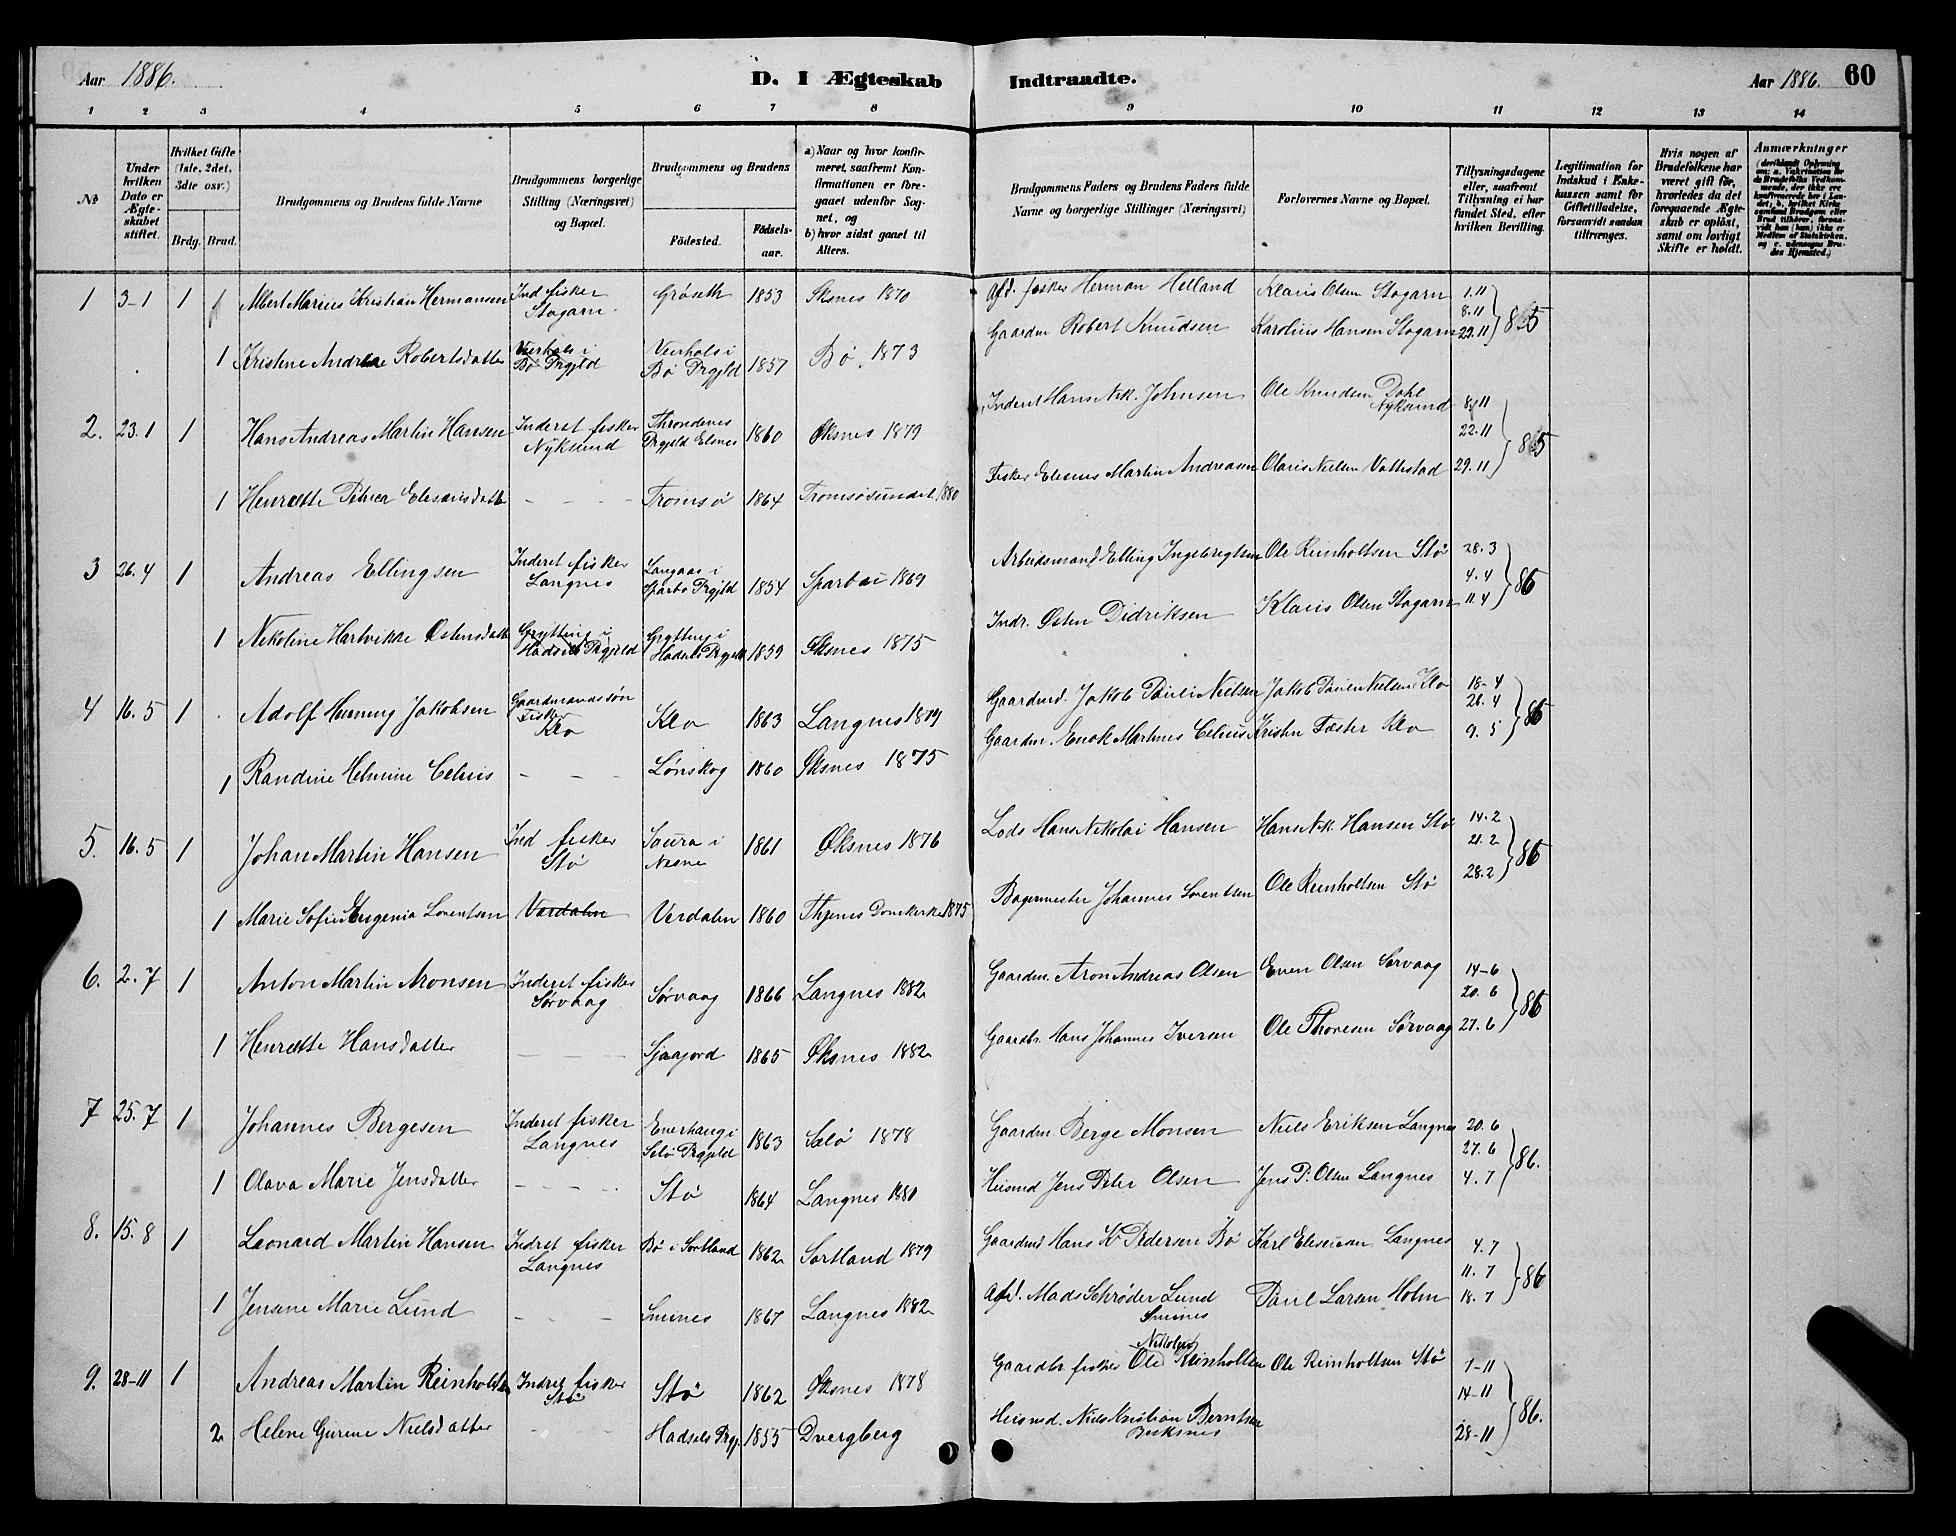 Aar 1886. D. I Ægteskab Indtraadte. Aar 1886. 60
1 2 3 4 5 6 7 8 9 10 11 12 13 14
№
Under hvilken Dato er Ægteskabet stiftet.
Hvilket Gifte (1ste, 2det, 3die osv.)
Brdg. Brud.
Brudgommens og Brudens fulde Navne
Brudgommens borgerlige Stilling (Næringsvei) og Bopæl.
Brudgommens og Brudens
Födested. Födsels-aar.
a) Naar og hvor konfirmeret, saafremt Konfirmationen er foregaaet udenfor Sognet, og
b) hvor sidst gaaet til Alters.
Brudgommens Faders og Brudens Faders fulde Navne og borgerlige Stillinger (Næringsvei)
Forlovernes Navne og Bopæl.
Tillysningsdagene eller, saafremt Tillysning ei har fundet Sted, efter hvilken Bevilling.
Legitimation for Indskud i Enkekassen samt for Giftetilladelse, forsaavidt saadan tiltrænges.
Hvis nogen af Brudefolkene har været gift för, hvorledes da det foregaaende Ægteskab er oplöst, samt om lovligt Skifte er holdt.
Anmærkninger
1 3-1 1 Albert Marius Kristian Hermansen Ind fisker Stogarn Gröseth 1853 Øksnes 1870 Afd. fisker Herman Helland Klaus Olsen Stogarn 1.11 8.11
1 Kristine Andrea Robertsdatter Bö Prgjld Bö Prgjld 1857 Bö 1873 Gaardm Robert Knudsen Karolius Hansen Stogarn 22.11 } 85
2. 23.1 1 Hans Andreas Martin Hansen Inderst fisker Nyksund Throndenes Prgjeld 1860 Øksnes 1879 Inderst Hans Nik. Johnsen Ole Knudsen Dahl Nyksund 8.11 22.11
1 Henrette Petrea Eliseusdatter - - - Tromsö 1864 Tromsösundet 1880 Fisker Martin Andreasen Olaris Nielsen 29.11 } 85
3 26.4 1 Andreas Ellingsen Inderst fisker Langnes Langaas i Sparbo Prgjld 1854 Sparbu 1869 Arbeidsmand Elling Ingebregtsen Ole Reinholtsen Stö 28.3 4.4
1 Nekoline Hartvikke Östensdatter Grytting i Hadsels Prgjeld Grytting i Hadsels Prgjeld 1859 Øksnes 1875 Indr. Östen Didriksen Klaus Olsen Stogarn 11.4 } 86
4 16.5 1 Adolf Henning Jakobsen Gaardmandssön Fisker Klo Klo 1863 Langnes 1879 Gaardmd. Jakob Pauli Nielsen Jakob Pauli Nielsen Klo 18-4 26.4
1 Randine Helmine Celius - - - Lönskog 1860 Øksnes 1875 Gaardm. Enok Martines Celius Kristen Foster Klo 9.5 } 86
5. 16.5 1 Johan Martin Hansen Ind fisker Stö Saura i Nesne 1861 Øksnes 1876 Lods Hans Nikolai Hansen Hans Nik. Hansen Stö 14.2 21.2
1 Marie Sofie Eugenia Lorentsen Værdalen Værdalen 1860 Thjems Domkirke 1875 Bagermester Johannes Lorentsen Ole Reinholtsen Stö 28.2 } 86
6. 2.7 1 Anton Martin Aronsen Inderst fisker Sörvaag Sörvaag 1866 Langnes 1882 Gaardm. Aron Andreas Olsen Even Olsen Sörvaag 14-6 20.6
1 Henrette Hansdatter - - - Sjaajord 1865 Øksnes 1882 Gaardbr. Hans Johannes Iversen Ole Thoresen Sörvaag 27.6 } 86
7 25.7 1 Johannes Bergesen Inderst fisker Langnes Prgjeld 1863 Selö 1878 Gaardm. Berge Monsen Niels Eriksen Langnes 20.6 27.6
1 Olava Marie Jensdatter - - - Stö 1864 Langnes 1880 Husmd Jens Peter Olsen Jens P. Olsen Langnes 4.7 } 86.
8. 15.8 1 Leonard Martin Hansen Indrst fisker Langnes Bö i Sortland 1862 Sortland 1879 Gaardmd Hans K. Pedersen Bö Karl Eliseusen Langnes 4.7 11.7
1 Jensine Marie Lund - - - Smines 1867 Langnes 1882 Afd. Mads Schröder Lund Smines Paul Larsen Holm 18.7 } 86
9. 28-11 1 Andreas Martin Reinholdtsen Indrst fisker Stö Stö 1862 Øksnes 1878 Gaardbr fisker Ole Nikolai Reinholtsen Ole Reinholtsen Stö 7-11 14-11
2 Helene Gurine Nielsdatter - - - Hadsels Prgj. 1855 Dvergberg Husmd. Niels Kristian Berntsen 28-11 } 86.